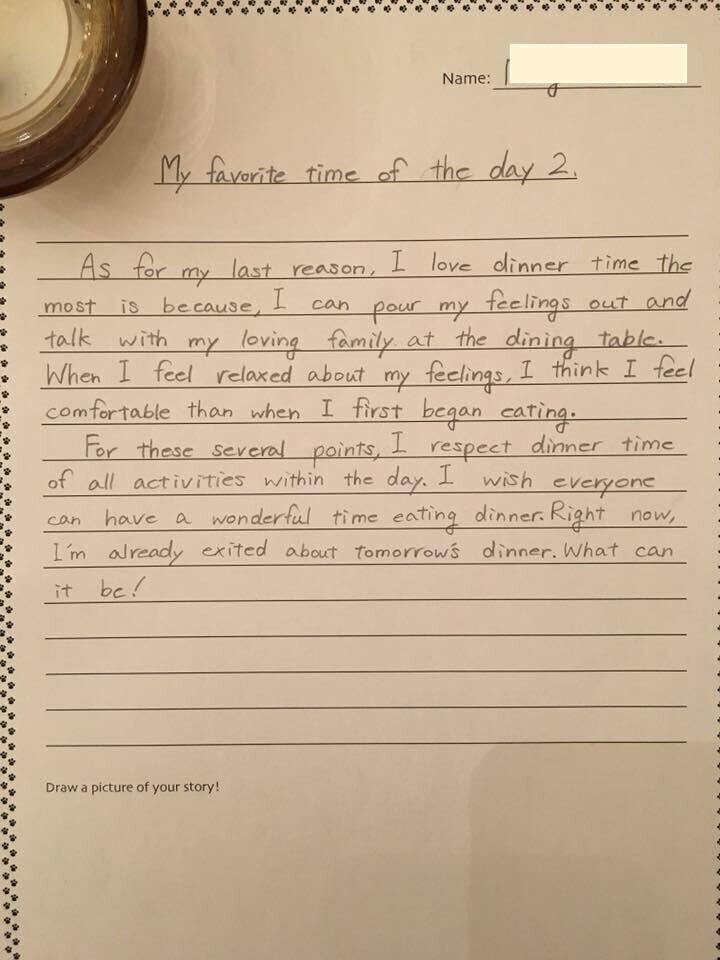 Name:
My favorite time of the day 2.
As for my last reason, I love dinner time the
most is because, I can pour my feelings out and
talk with my loving family at the dining table.
When I feel relaxed about my feelings, I think I feel
comfortable than when I first began eating.
For these several points, I respect dinner time
of all activities within the day. I wish everyone
can have a wonderful time eating dinner. Right now,
I'm already exited about tomorrow's dinner. What can
it be!
Draw a picture of your story!